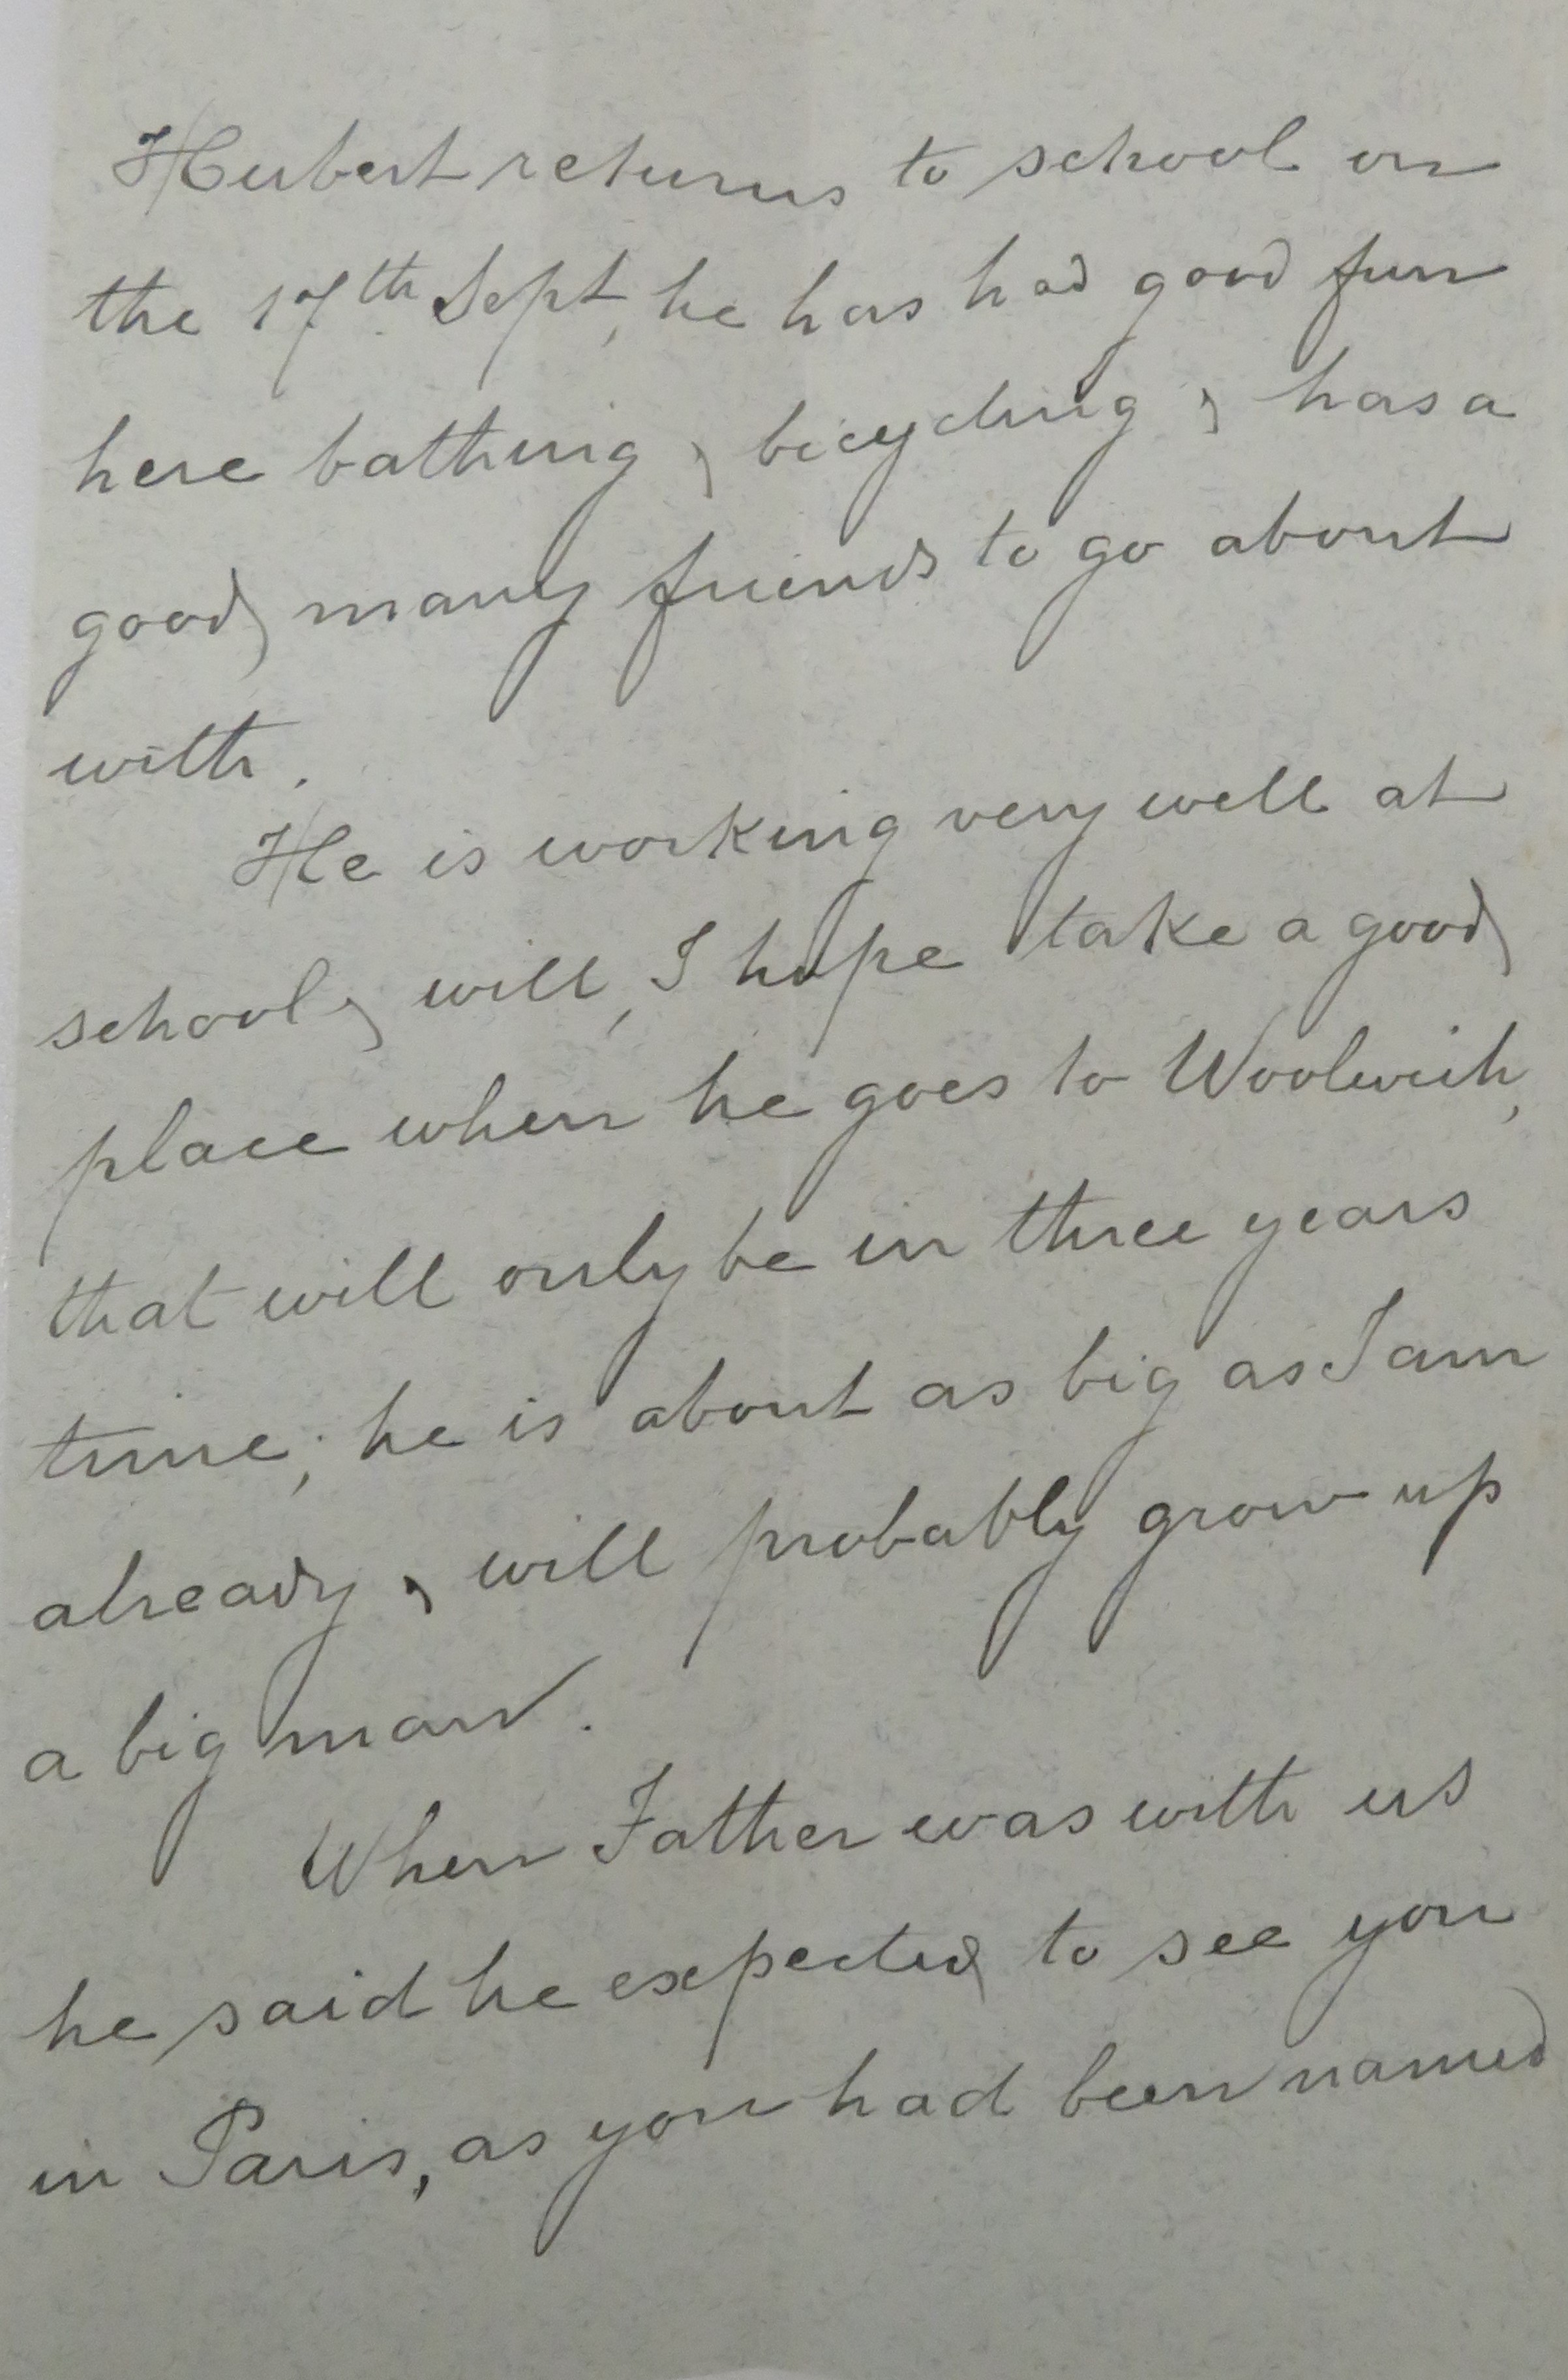 Hubert returns to school on
the 17th Sept, he has had good fun
here bathing & bicycling & has a
good many friends to go about
with.
He is working very well at
school & will, I hope take a good
place when he goes to Woolwich,
that will only be in three years
time; he is about as big as I am
already & will probably grow up
a big man.
When Father was with us
he said he expected to see you
in Paris, as you had been named